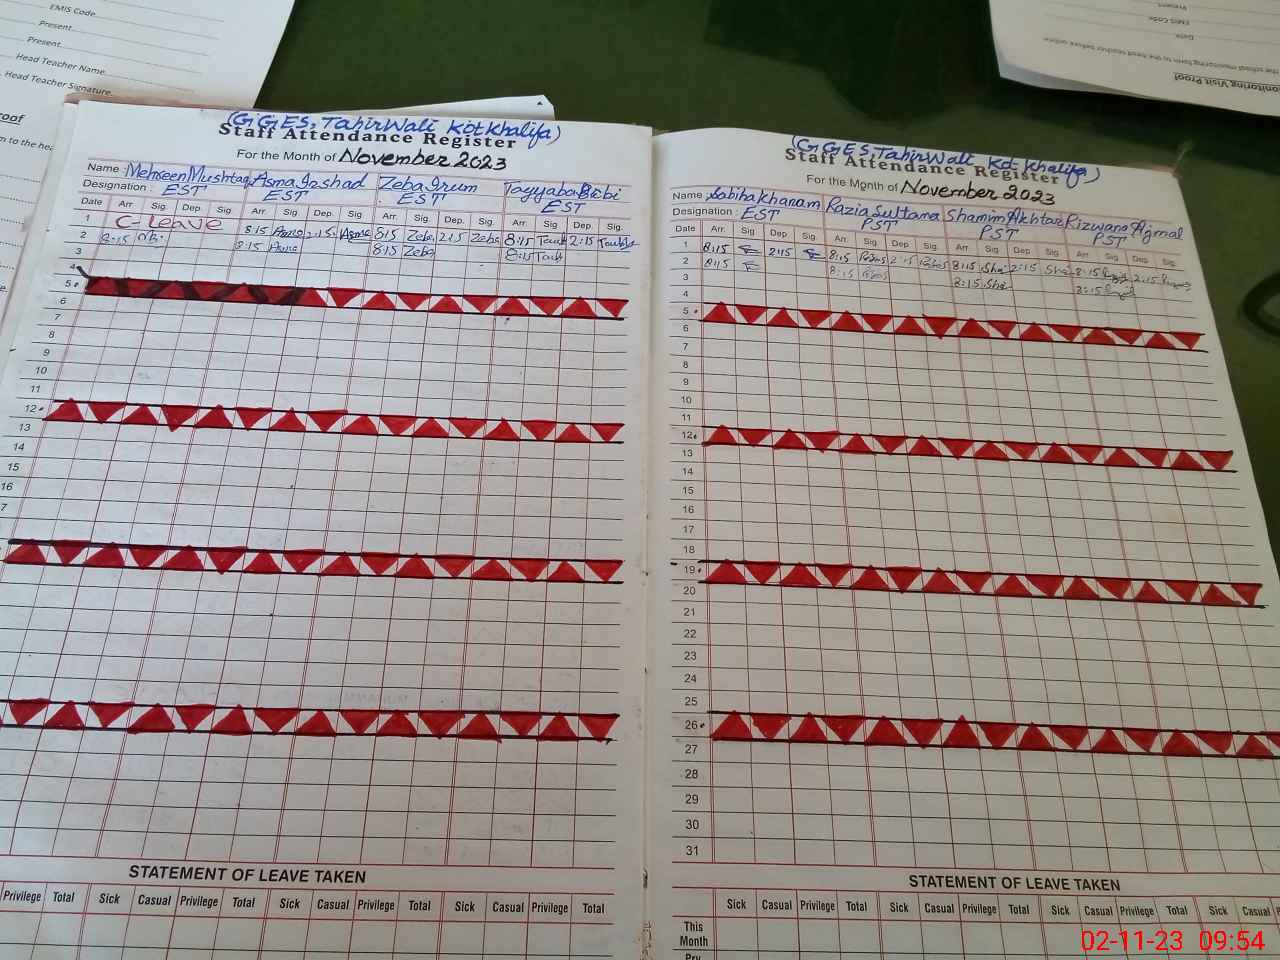 EMIS Code
Present
Present
Head Teacher Name
Head Teacher Signature
(GGES, Tahir Wali Kot Khalifa)
Staff Attendance Register
For the Month of November 2023
Name : Mehreen Mushtaq Asma Irshad Zeba Irum Tayyaba Bibi
Designation : EST EST EST EST
Date Arr. Sig. Dep. Sig. Arr. Sig. Dep. Sig. Arr. Sig. Dep. Sig. Arr. Sig. Dep. Sig.
1 C-Leave 8:15 Asma 2:15 Asma 8:15 Zeba 2:15 Zeba 8:15 2:15
2 8:15 8:15 Asma 8:15 Zeba 8:15
3
4
5
6
7
8
9
10
11
12
13
14
15
16
7
STATEMENT OF LEAVE TAKEN
Privilege Total Sick Casual Privilege Total Sick Casual Privilege Total Sick Casual Privilege Total
(GGES, Tahir Wali Kot Khalifa)
Staff Attendance Register
For the Month of November 2023
Name : Sabiha Khanam Razia Sultana Shamim Akhtar Rizwana Ajmal
Designation : EST PST PST PST
Date Arr. Sig. Dep. Sig. Arr. Sig. Dep. Sig. Arr. Sig. Dep. Sig. Arr. Sig. Dep. Sig.
1 8:15 2:15 8:15 2:15 8:15 Sha 2:15 Sha 8:15 2:15
2 8:15 8:15 8:15 Sha 8:15
3
4
5
6
7
8
9
10
11
12
13
14
15
16
17
18
19
20
21
22
23
24
25
26
27
28
29
30
31
STATEMENT OF LEAVE TAKEN
Sick Casual Privilege Total Sick Casual Privilege Total Sick Casual Privilege Total Sick Casual
This
Month
Monitoring Visit Proof
EMIS Code
Date
Present
02-11-23 09:54